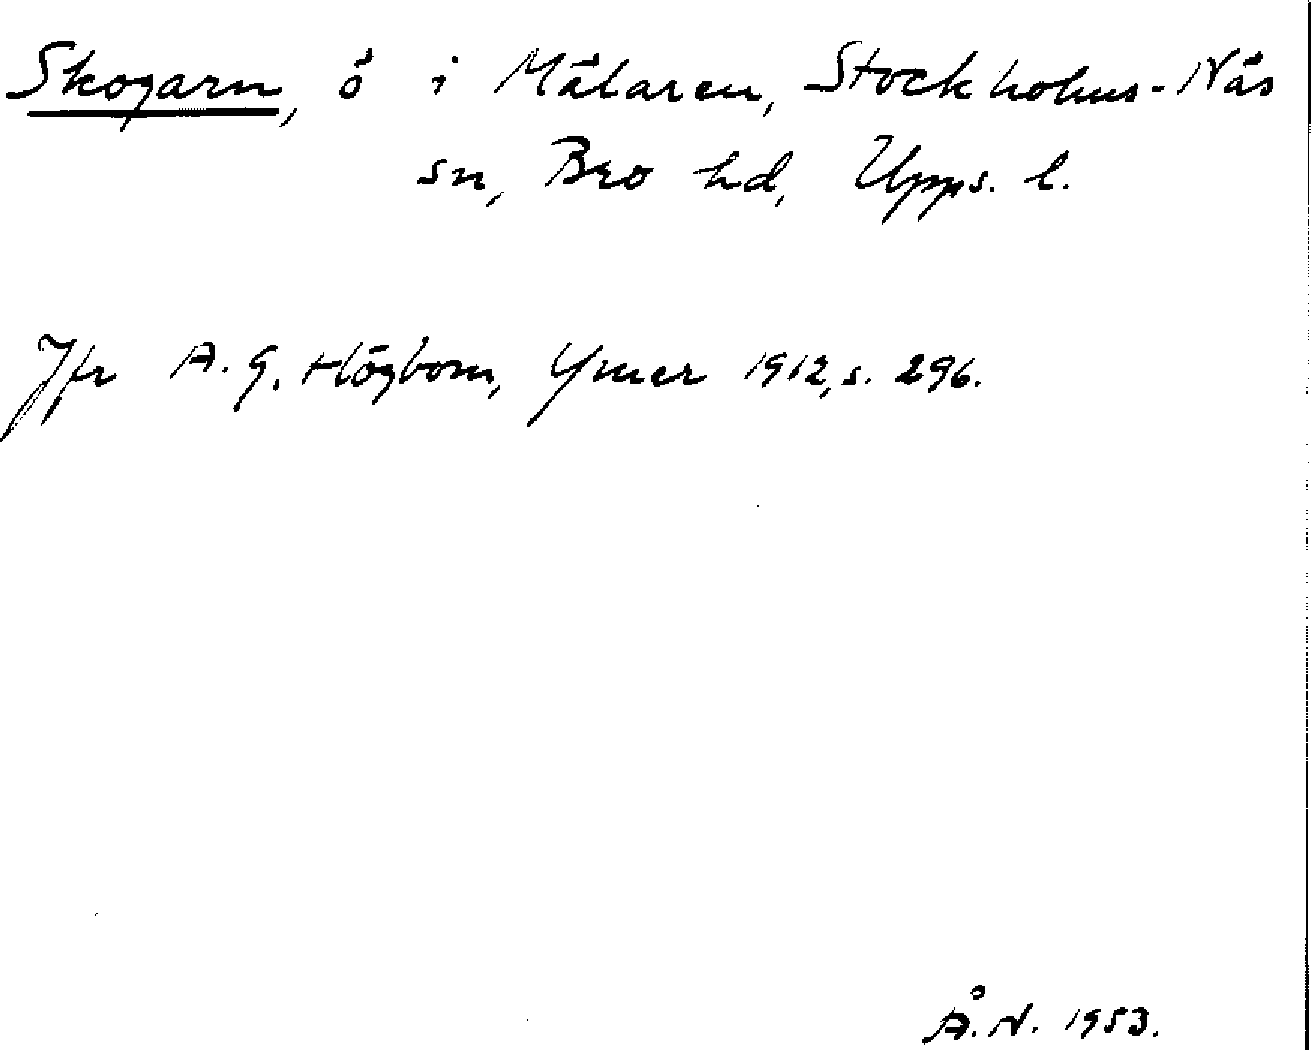 Skogarn, ö i Mälaren, Stockholms-Näs
sn, Bro hd, Upps. l.
Jfr A. G. Högbom, Ymer 1912, s. 296.
Å. N. 1953.